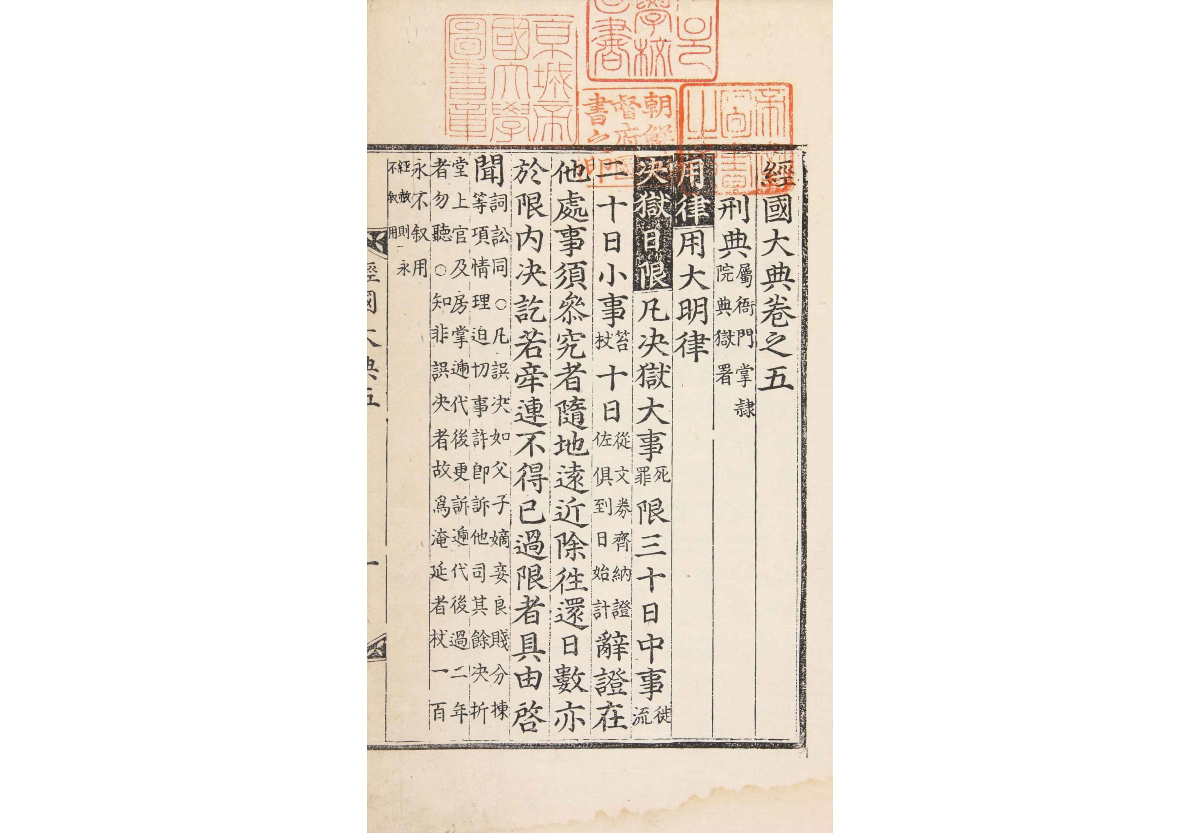 京城帝
國大學
圖書章
朝鮮
督府
書之印
經國大典卷之五
刑典屬衙門掌隷院典獄署
用律用大明律
決獄日限凡决獄大事死罪限三十日中事徒流
二十日小事笞杖十日從文券齊納證佐俱到日始計辭證在
他處事須叅究者隨地遠近除徃還日數亦
於限内决訖若牽連不得已過限者具由啓
聞詞訟同○凡誤决如父子嫡妾良賤分揀等項情理迫切事許卽訴他司其餘决折
堂上官及房掌遞代後更訴遞代後過二年者勿聽○知非誤决者故爲淹延者杖一百
永不叙用經赦則永不叙用
經國大典五 一